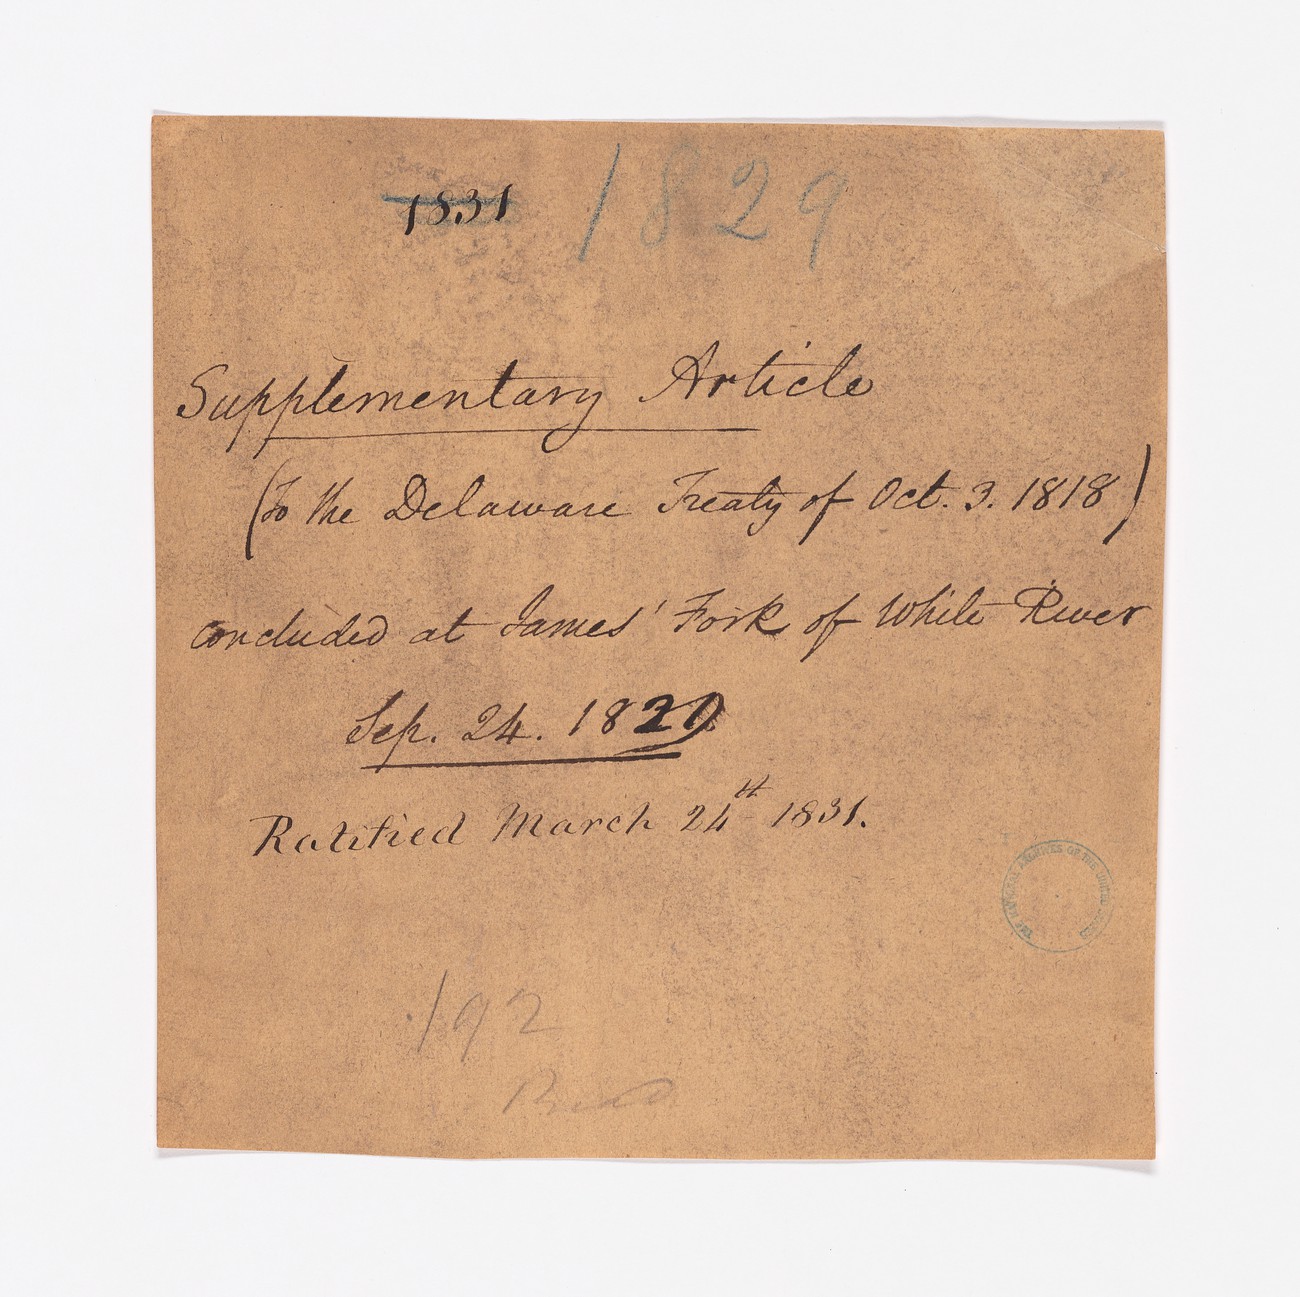 1831 1829
Supplementary Article
(To the Delaware Treaty of Oct. 3. 1818)
concluded at James' Fork of White River
Sep. 24. 1829
Ratified March 24th 1831.
THE NATIONAL ARCHIVES OF THE UNITED STATES
192